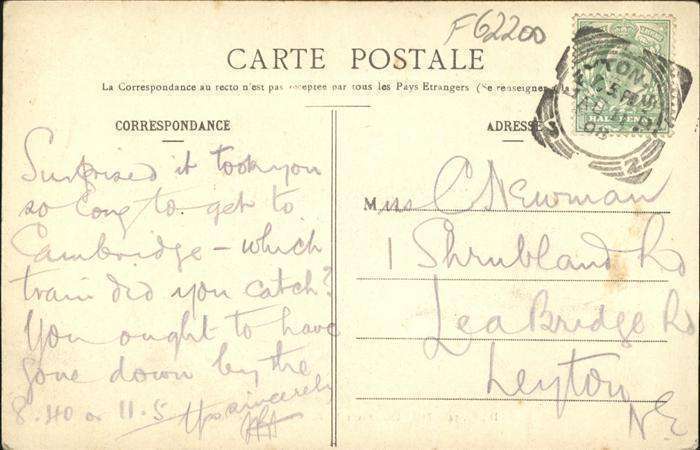 F62200
CARTE POSTALE
La Correspondance au recto n'est pas acceptée par tous les Pays Etrangers (Se renseigner à la
CORRESPONDANCE
ADRESSE
HALF PENNY
LEYTON
Surprised it took you
so long to get to
Cambridge – which
train did you catch?
You ought to have
gone down by the
8.40 or 11.5
Yrs sincerely
Miss C Newman
1 Shrubland Rd
Lea Bridge Rd
Leyton
N.E